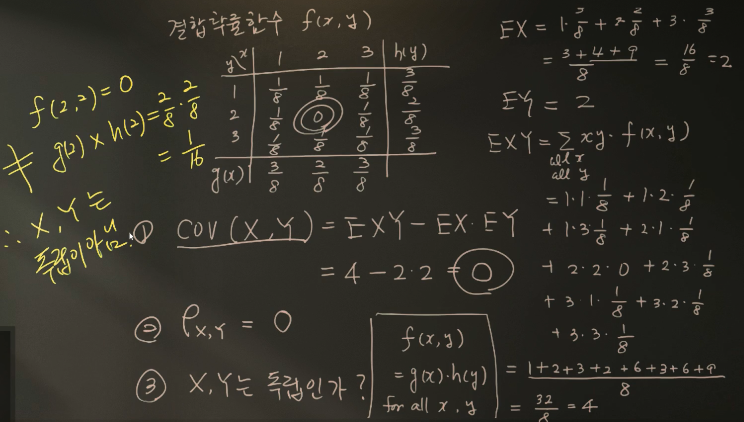 결합확률함수 f(x,y)
y\x 1 2 3 h(y)
1 1/8 1/8 1/8 3/8
2 1/8 0 1/8 2/8
3 1/8 1/8 1/8 3/8
g(x) 3/8 2/8 3/8
f(2,2)=0
≠ g(2)×h(2)=2/8·2/8
=1/16
∴ X, Y는
독립이 아님.
① COV(X,Y) = EXY - EX·EY
= 4 - 2·2 = 0
② ρX,Y = 0
③ X,Y는 독립인가?
f(x,y)
=g(x)·h(y)
for all x, y
EX = 1·3/8 + 2·2/8 + 3·3/8
= 3+4+9/8 = 16/8 = 2
EY = 2
EXY = Σ xy·f(x,y)
all x
all y
= 1·1·1/8 + 1·2·1/8
+ 1·3 1/8 + 2·1·1/8
+ 2·2·0 + 2·3·1/8
+ 3·1·1/8 + 3·2·1/8
+ 3·3·1/8
= 1+2+3+2+6+3+6+9/8
= 32/8 = 4